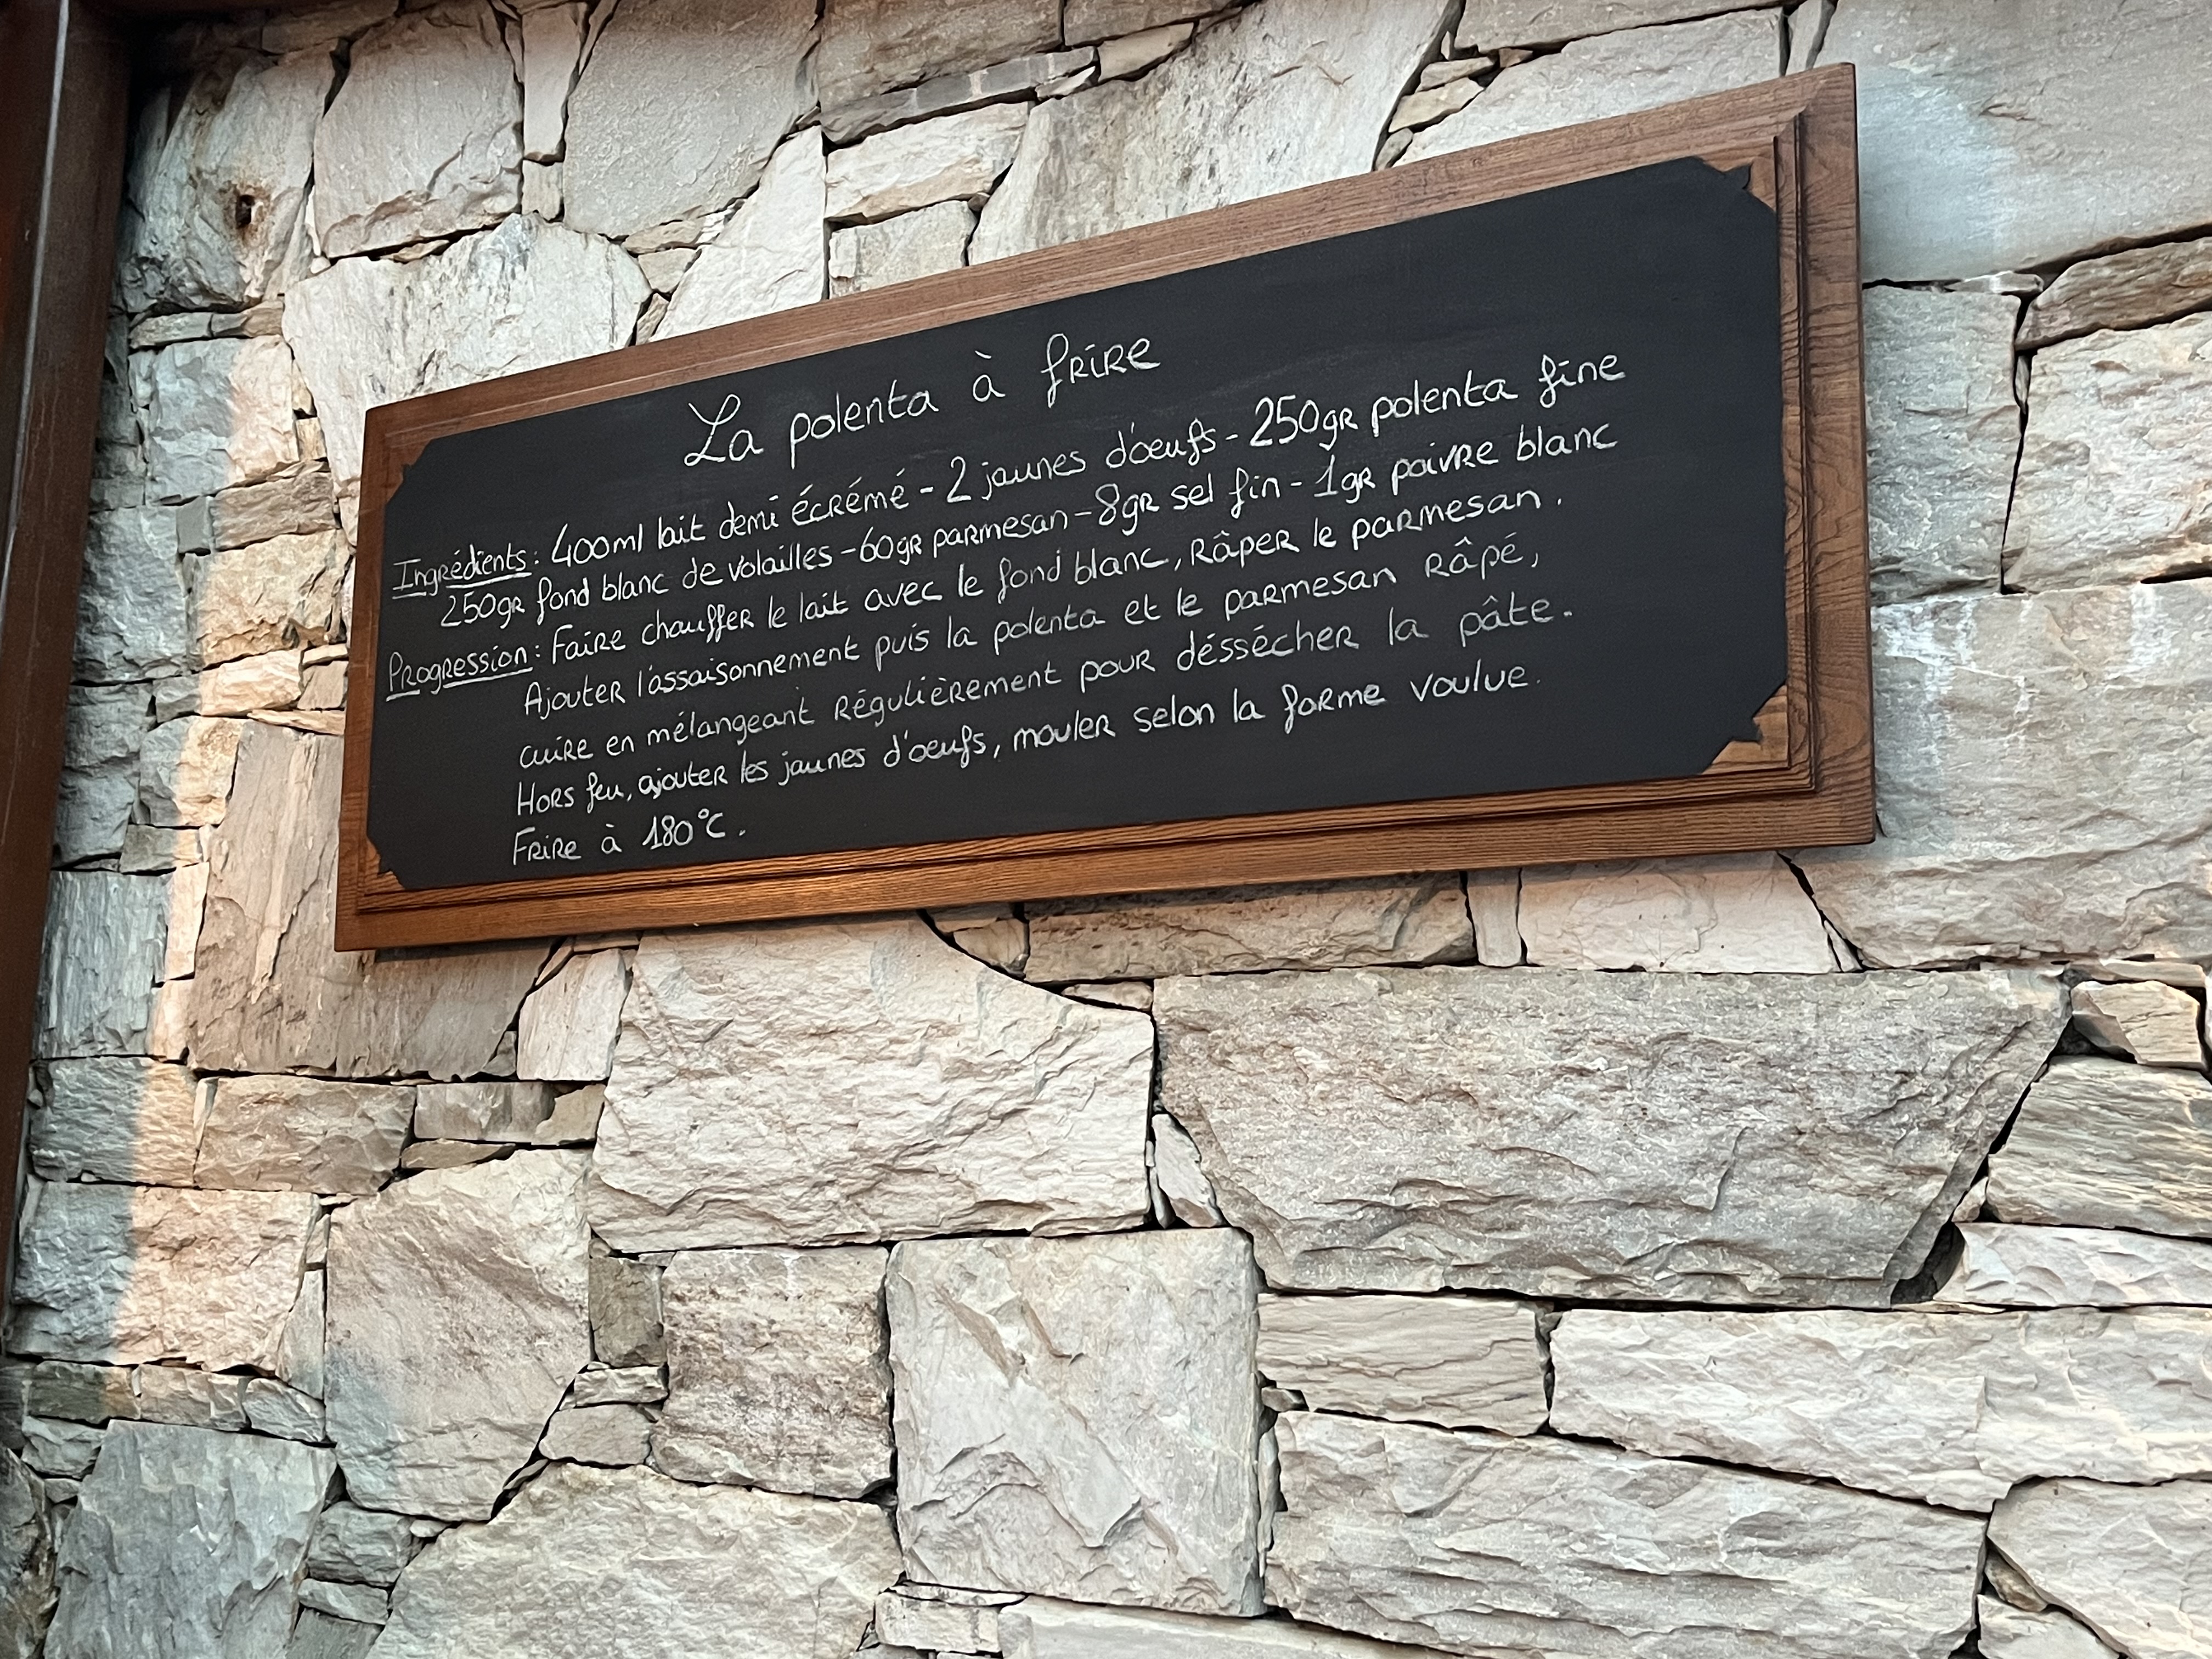 La polenta à frire
Ingrédients: 400ml lait demi écrémé - 2 jaunes d'oeufs - 250gr polenta fine
250gr fond blanc de volailles - 60gr parmesan - 8gr sel fin - 1gr poivre blanc
Progression: Faire chauffer le lait avec le fond blanc, râper le parmesan.
Ajouter l'assaisonnement puis la polenta et le parmesan râpé,
cuire en mélangeant régulièrement pour déssécher la pâte.
Hors feu, ajouter les jaunes d'oeufs, mouler selon la forme voulue.
Frire à 180°C.